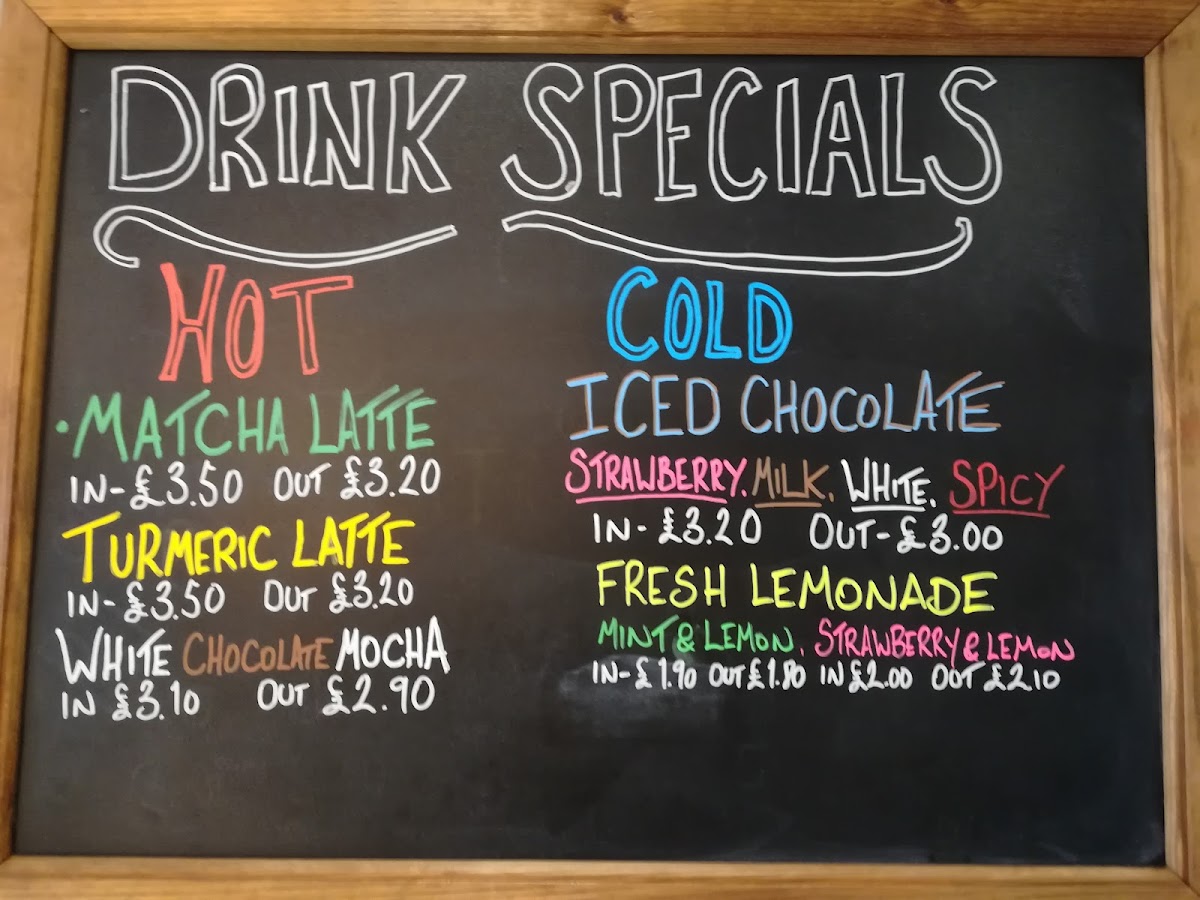 DRINK SPECIALS
HOT
·MATCHA LATTE
IN-£3.50 OUT £3.20
TURMERIC LATTE
IN-£3.50 OUT £3.20
WHITE CHOCOLATE MOCHA
IN £3.10 OUT £2.90
COLD
ICED CHOCOLATE
STRAWBERRY. MILK. WHITE. SPICY
IN-£3.20 OUT-£3.00
FRESH LEMONADE
MINT & LEMON. STRAWBERRY & LEMON
IN-£1.90 OUT £1.80 IN £2.00 OUT £2.10